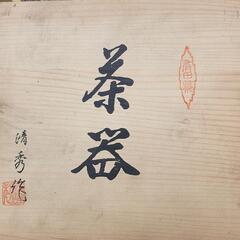 茶器
清秀作